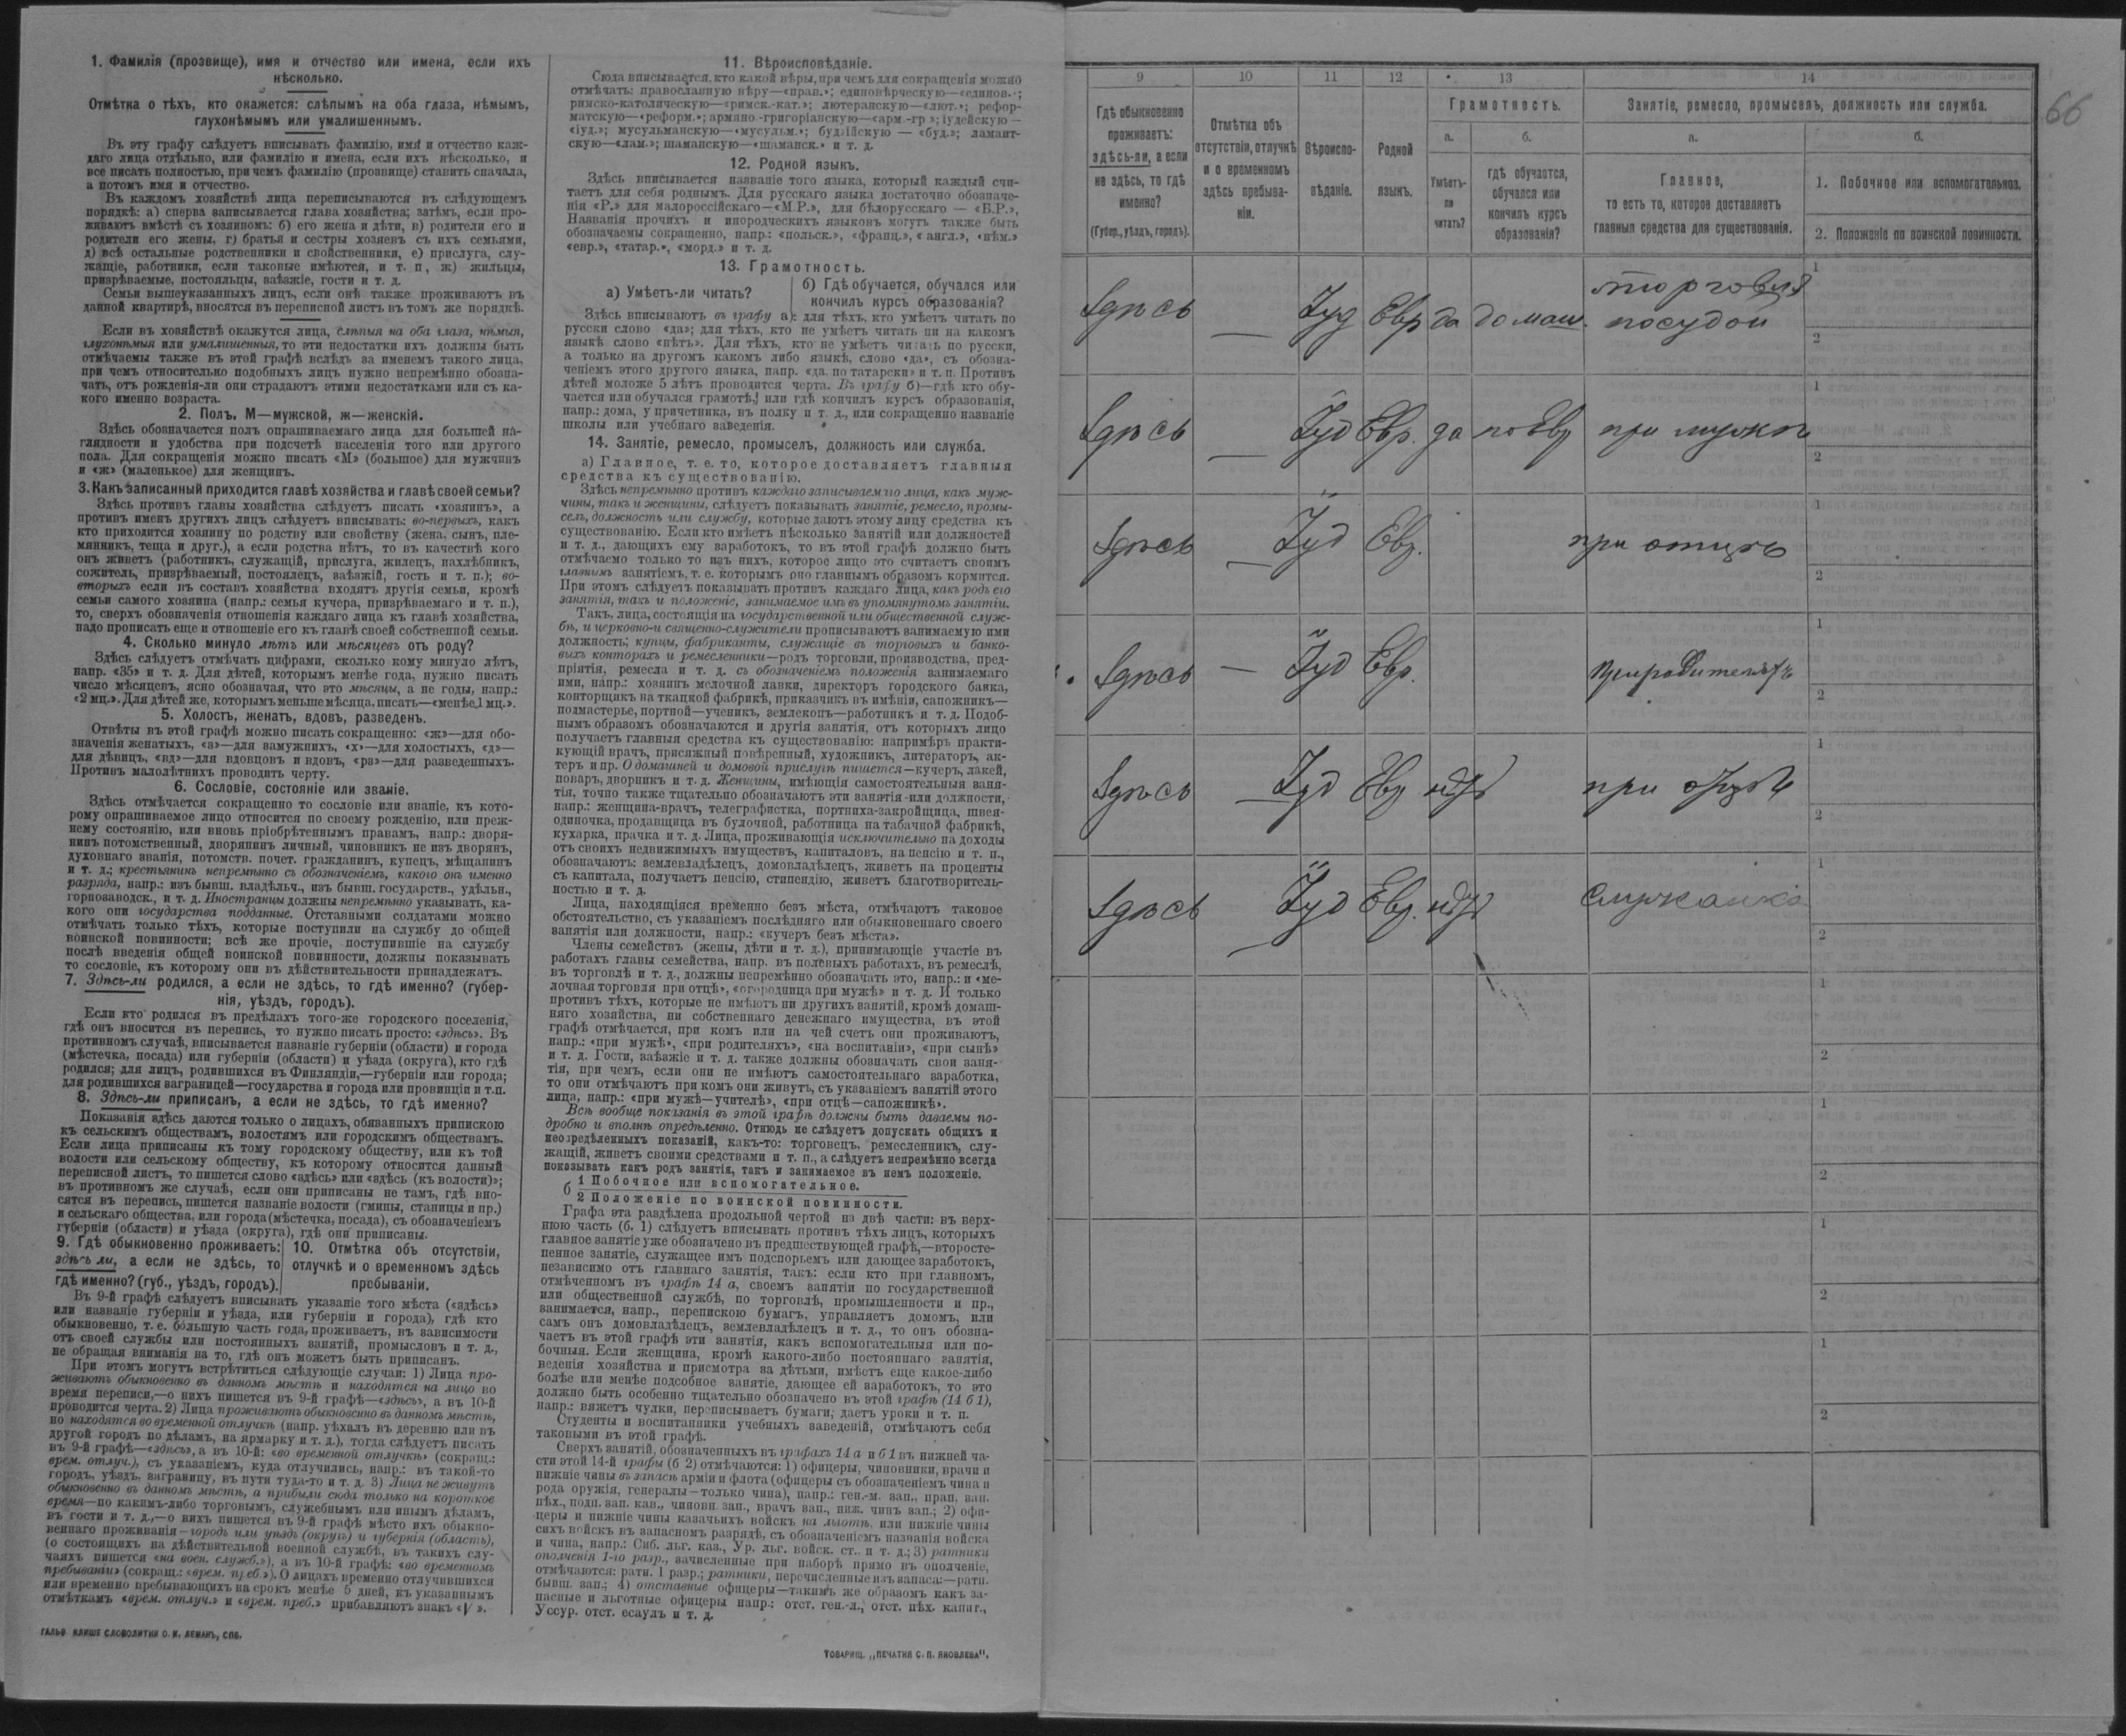 1. Фамилія (прозвище), имя и отчество или имена, если ихъ
нѣсколько.
Отмѣтка о тѣхъ, кто окажется: слѣпымъ на оба глаза, нѣмымъ,
глухонѣмымъ или умалишеннымъ.
Въ эту графу слѣдуетъ вписывать фамилію, имя и отчество каж-
даго лица отдѣльно, или фамилію и имена, если ихъ нѣсколько, и
все писать полностью, при чемъ фамилію (прозвище) ставить сначала,
а потомъ имя и отчество.
Въ каждомъ хозяйствѣ лица переписываются въ слѣдующемъ
порядкѣ: а) сперва записывается глава хозяйства; затѣмъ, если про-
живаютъ вмѣстѣ съ хозяиномъ: б) его жена и дѣти, в) родители его и
родители его жены, г) братья и сестры хозяевъ съ ихъ семьями,
д) всѣ остальные родственники и свойственники, е) прислуга, слу-
жащіе, работники, если таковые имѣются, и т. п, ж) жильцы,
призрѣваемые, постояльцы, заѣзжіе, гости и т. д.
Семьи вышеуказанныхъ лицъ, если онѣ также проживаютъ въ
данной квартирѣ, вносятся въ переписной листъ въ томъ же порядкѣ.
Если въ хозяйствѣ окажутся лица, слѣпыя на оба глаза, нѣмыя,
глухонѣмыя или умалишенныя, то эти недостатки ихъ должны быть
отмѣчаемы также въ этой графѣ вслѣдъ за именемъ такого лица,
при чемъ относительно подобныхъ лицъ нужно непремѣнно обозна-
чать, отъ рожденія-ли они страдаютъ этими недостатками или съ ка-
кого именно возраста.
2. Полъ. М—мужской, ж—женскій.
Здѣсь обозначается полъ опрашиваемаго лица для большей на-
глядности и удобства при подсчетѣ населенія того или другого
пола. Для сокращенія можно писать «М» (большое) для мужчинъ
и «ж» (маленькое) для женщинъ.
3. Какъ записанный приходится главѣ хозяйства и главѣ своей семьи?
Здѣсь противъ главы хозяйства слѣдуетъ писать «хозяинъ», а
противъ именъ другихъ лицъ слѣдуетъ вписывать: во-первыхъ, какъ
кто приходится хозяину по родству или свойству (жена, сынъ, пле-
мянникъ, теща и друг.), а если родства нѣтъ, то въ качествѣ кого
онъ живетъ (работникъ, служащій, прислуга, жилецъ, нахлѣбникъ,
сожитель, призрѣваемый, постоялецъ, заѣзжій, гость и т. п.); во-
вторыхъ если въ составъ хозяйства входятъ другія семьи, кромѣ
семьи самого хозяина (напр.: семья кучера, призрѣваемаго и т. п.),
то, сверхъ обозначенія отношенія каждаго лица къ главѣ хозяйства,
надо прописать еще и отношеніе его къ главѣ своей собственной семьи.
4. Сколько минуло лѣтъ или мѣсяцевъ отъ роду?
Здѣсь слѣдуетъ отмѣчать цифрами, сколько кому минуло лѣтъ,
напр. «35» и т. д. Для дѣтей, которымъ менѣе года, нужно писать
число мѣсяцевъ, ясно обозначая, что это мѣсяцы, а не годы, напр.:
«2 мц.». Для дѣтей же, которымъ меньше мѣсяца, писать—«менѣе 1 мц.».
5. Холостъ, женатъ, вдовъ, разведенъ.
Отвѣты въ этой графѣ можно писать сокращенно: «ж»—для обо-
значенія женатыхъ, «з»—для замужнихъ, «х»—для холостыхъ, «д»—
для дѣвицъ, «вд»—для вдовцовъ и вдовъ, «рз»—для разведенныхъ.
Противъ малолѣтнихъ проводить черту.
6. Сословіе, состояніе или званіе.
Здѣсь отмѣчается сокращенно то сословіе или званіе, къ кото-
рому опрашиваемое лицо относится по своему рожденію, или преж-
нему состоянію, или вновь пріобрѣтеннымъ правамъ, напр.: дворя-
нинъ потомственный, дворянинъ личный, чиновникъ не изъ дворянъ,
духовнаго званія, потомств. почет. гражданинъ, купецъ, мѣщанинъ
и т. д.; крестьянинъ непремѣнно съ обозначеніемъ, какого онъ именно
разряда, напр.: изъ бывш. владѣльч., изъ бывш. государств., удѣльн.,
горнозаводск., и т. д. Иностранцы должны непремѣнно указывать, ка-
кого они государства подданные. Отставными солдатами можно
отмѣчать только тѣхъ, которые поступили на службу до общей
воинской повинности; всѣ же прочіе, поступившіе на службу
послѣ введенія общей воинской повинности, должны показывать
то сословіе, къ которому они въ дѣйствительности принадлежатъ.
7. Здѣсь-ли родился, а если не здѣсь, то гдѣ именно? (губер-
нія, уѣздъ, городъ).
Если кто родился въ предѣлахъ того-же городского поселенія,
гдѣ онъ вносится въ перепись, то нужно писать просто: «здѣсь». Въ
противномъ случаѣ, вписывается названіе губерніи (области) и города
(мѣстечка, посада) или губерніи (области) и уѣзда (округа), кто гдѣ
родился; для лицъ, родившихся въ Финляндіи,—губерніи или города;
для родившихся заграницей—государства и города или провинціи и т.п.
8. Здѣсь-ли приписанъ, а если не здѣсь, то гдѣ именно?
Показанія здѣсь даются только о лицахъ, обязанныхъ припискою
къ сельскимъ обществамъ, волостямъ или городскимъ обществамъ.
Если лица приписаны къ тому городскому обществу, или къ той
волости или сельскому обществу, къ которому относится данный
переписной листъ, то пишется слово «здѣсь» или «здѣсь (къ волости)»;
въ противномъ же случаѣ, если они приписаны не тамъ, гдѣ вно-
сятся въ перепись, пишется названіе волости (гмины, станицы и пр.)
и сельскаго общества, или города (мѣстечка, посада), съ обозначеніемъ
губерніи (области) и уѣзда (округа), гдѣ они приписаны.
9. Гдѣ обыкновенно проживаетъ:
здѣсь ли, а если не здѣсь, то
гдѣ именно? (губ., уѣздъ, городъ).
10. Отмѣтка объ отсутствіи,
отлучкѣ и о временномъ здѣсь
пребываніи.
Въ 9-й графѣ слѣдуетъ вписывать указаніе того мѣста («здѣсь»
или названіе губерніи и уѣзда, или губерніи и города), гдѣ кто
обыкновенно, т. е. бо́льшую часть года, проживаетъ, въ зависимости
отъ своей службы или постоянныхъ занятій, промысловъ и т. д.,
не обращая вниманія на то, гдѣ онъ можетъ быть приписанъ.
При этомъ могутъ встрѣтиться слѣдующіе случаи: 1) Лица про-
живаютъ обыкновенно въ данномъ мѣстѣ и находятся на лицо во
время переписи,—о нихъ пишется въ 9-й графѣ—«здѣсь», а въ 10-й
проводится черта. 2) Лица проживаютъ обыкновенно въ данномъ мѣстѣ,
но находятся во временной отлучкѣ (напр. уѣхалъ въ деревню или въ
другой городъ по дѣламъ, на ярмарку и т. д.), тогда слѣдуетъ писать
въ 9-й графѣ—«здѣсь», а въ 10-й: «во временной отлучкѣ» (сокращ.:
врем. отлуч.), съ указаніемъ, куда отлучились, напр.: въ такой-то
городъ, уѣздъ, заграницу, въ пути туда-то и т. д. 3) Лица не живутъ
обыкновенно въ данномъ мѣстѣ, а прибыли сюда только на короткое
время—по какимъ-либо торговымъ, служебнымъ или инымъ дѣламъ,
въ гости и т. д.,—о нихъ пишется въ 9-й графѣ мѣсто ихъ обыкно-
веннаго проживанія—городъ или уѣздъ (округъ) и губернія (область),
(о состоящихъ на дѣйствительной военной службѣ, въ такихъ слу-
чаяхъ пишется «на воен. служб.»), а въ 10-й графѣ: «во временномъ
пребываніи» (сокращ.: «врем. преб.»). О лицахъ временно отлучившихся
или временно пребывающихъ на срокъ менѣе 5 дней, къ указаннымъ
отмѣткамъ «врем. отлуч.» и «врем. преб.» прибавляютъ знакъ «V».
ГАЛЬВ. КЛИШЕ СЛОВОЛИТНИ О. И. ЛЕМАНЪ, СПБ.
11. Вѣроисповѣданіе.
Сюда вписывается, кто какой вѣры, при чемъ для сокращенія можно
отмѣчать: православную вѣру—«прав.»; единовѣрческую—«единов.»;
римско-католическую—«римск.-кат.»; лютеранскую—«лют.»; рефор-
матскую—«реформ.»; армяно-григоріанскую—«арм.-гр»; іудейскую—
«іуд.»; мусульманскую—«мусульм.»; буддійскую — «буд.»; ламаит-
скую—«лам.»; шаманскую—«шаманск.» и т. д.
12. Родной языкъ.
Здѣсь вписывается названіе того языка, который каждый счи-
таетъ для себя роднымъ. Для русскаго языка достаточно обозначе-
нія «Р.» для малороссійскаго—«М.Р.», для бѣлорусскаго — «Б.Р.»,
Названія прочихъ и инородческихъ языковъ могутъ также быть
обозначаемы сокращенно, напр.: «польск.», «франц.», «англ.», «нѣм.»
«евр.», «татар.», «морд.» и т. д.
13. Грамотность.
а) Умѣетъ-ли читать?
б) Гдѣ обучается, обучался или
кончилъ курсъ образованія?
Здѣсь вписываютъ въ графу а): для тѣхъ, кто умѣетъ читать по
русски слово «да»; для тѣхъ, кто не умѣетъ читать ни на какомъ
языкѣ слово «нѣтъ». Для тѣхъ, кто не умѣетъ читать по русски,
а только на другомъ какомъ либо языкѣ, слово «да», съ обозна-
ченіемъ этого другого языка, напр. «да, по татарски» и т. п. Противъ
дѣтей моложе 5 лѣтъ проводится черта. Въ графу б)—гдѣ кто обу-
чается или обучался грамотѣ, или гдѣ кончилъ курсъ образованія,
напр.: дома, у причетника, въ полку и т. д., или сокращенно названіе
школы или учебнаго заведенія.
14. Занятіе, ремесло, промыселъ, должность или служба.
а) Главное, т. е. то, которое доставляетъ главныя
средства къ существованію.
Здѣсь непремѣнно противъ каждаго записываемаго лица, какъ муж-
чины, такъ и женщины, слѣдуетъ показывать занятіе, ремесло, промы-
селъ, должность или службу, которые даютъ этому лицу средства къ
существованію. Если кто имѣетъ нѣсколько занятій или должностей
и т. д., дающихъ ему заработокъ, то въ этой графѣ должно быть
отмѣчаемо только то изъ нихъ, которое лицо это считаетъ своимъ
главнымъ занятіемъ, т. е. которымъ оно главнымъ образомъ кормится.
При этомъ слѣдуетъ показывать противъ каждаго лица, какъ родъ его
занятія, такъ и положеніе, занимаемое имъ въ упомянутомъ занятіи.
Такъ, лица, состоящія на государственной или общественной служ-
бѣ, и церковно-и священно-служители прописываютъ занимаемую ими
должность; купцы, фабриканты, служащіе въ торговыхъ и банко-
выхъ конторахъ и ремесленники—родъ торговли, производства, пред-
пріятія, ремесла и т. д. съ обозначеніемъ положенія занимаемаго
ими, напр.: хозяинъ мелочной лавки, директоръ городского банка,
конторщикъ на ткацкой фабрикѣ, приказчикъ въ имѣніи, сапожникъ—
подмастерье, портной—ученикъ, землекопъ—работникъ и т. д. Подоб-
нымъ образомъ обозначаются и другія занятія, отъ которыхъ лицо
получаетъ главныя средства къ существованію: напримѣръ практи-
кующій врачъ, присяжный повѣренный, художникъ, литераторъ, ак-
теръ и пр. О домашней и домовой прислугѣ пишется—кучеръ, лакей,
поваръ, дворникъ и т. д. Женщины, имѣющія самостоятельныя заня-
тія, точно также тщательно обозначаютъ эти занятія или должности,
напр.: женщина-врачъ, телеграфистка, портниха-закройщица, швея-
одиночка, продавщица въ булочной, работница на табачной фабрикѣ,
кухарка, прачка и т. д. Лица, проживающія исключительно на доходы
отъ своихъ недвижимыхъ имуществъ, капиталовъ, на пенсію и т. п.,
обозначаютъ: землевладѣлецъ, домовладѣлецъ, живетъ на проценты
съ капитала, получаетъ пенсію, стипендію, живетъ благотворитель-
ностью и т. д.
Лица, находящіяся временно безъ мѣста, отмѣчаютъ таковое
обстоятельство, съ указаніемъ послѣдняго или обыкновеннаго своего
занятія или должности, напр.: «кучеръ безъ мѣста».
Члены семействъ (жены, дѣти и т. д.), принимающіе участіе въ
работахъ главы семейства, напр. въ полевыхъ работахъ, въ ремеслѣ,
въ торговлѣ и т. д., должны непремѣнно обозначать это, напр.: и «ме-
лочная торговля при отцѣ», «огородница при мужѣ» и т. д. И только
противъ тѣхъ, которые не имѣютъ ни другихъ занятій, кромѣ домаш-
няго хозяйства, ни собственнаго денежнаго имущества, въ этой
графѣ отмѣчается, при комъ или на чей счетъ они проживаютъ,
напр.: «при мужѣ», «при родителяхъ», «на воспитаніи», «при сынѣ»
и т. д. Гости, заѣзжіе и т. д. также должны обозначать свои заня-
тія, при чемъ, если они не имѣютъ самостоятельнаго заработка,
то они отмѣчаютъ при комъ они живутъ, съ указаніемъ занятій этого
лица, напр.: «при мужѣ—учителѣ», «при отцѣ—сапожникѣ».
Всѣ вообще показанія въ этой графѣ должны быть даваемы по-
дробно и вполнѣ опредѣленно. Отнюдь не слѣдуетъ допускать общихъ и
неопредѣленныхъ показаній, какъ-то: торговецъ, ремесленникъ, слу-
жащій, живетъ своими средствами и т. п., а слѣдуетъ непремѣнно всегда
показывать какъ родъ занятія, такъ и занимаемое въ немъ положеніе.
б 1 Побочное или вспомогательное.
2 Положеніе по воинской повинности.
Графа эта раздѣлена продольной чертой на двѣ части: въ верх-
нюю часть (б. 1) слѣдуетъ вписывать противъ тѣхъ лицъ, которыхъ
главное занятіе уже обозначено въ предшествующей графѣ,—второсте-
пенное занятіе, служащее имъ подспорьемъ или дающее заработокъ,
независимо отъ главнаго занятія, такъ: если кто при главномъ,
отмѣченномъ въ графѣ 14 а, своемъ занятіи по государственной
или общественной службѣ, по торговлѣ, промышленности и пр.,
занимается, напр., перепискою бумагъ, управляетъ домомъ, или
самъ онъ домовладѣлецъ, землевладѣлецъ и т. д., то онъ обозна-
чаетъ въ этой графѣ эти занятія, какъ вспомогательныя или по-
бочныя. Если женщина, кромѣ какого-либо постояннаго занятія,
веденія хозяйства и присмотра за дѣтьми, имѣетъ еще какое-либо
болѣе или менѣе подсобное занятіе, дающее ей заработокъ, то это
должно быть особенно тщательно обозначено въ этой графѣ (14 б 1),
напр.: вяжетъ чулки, переписываетъ бумаги, даетъ уроки и т. п.
Студенты и воспитанники учебныхъ заведеній, отмѣчаютъ себя
таковыми въ этой графѣ.
Сверхъ занятій, обозначенныхъ въ графахъ 14 а и б 1 въ нижней ча-
сти этой 14-й графы (б 2) отмѣчаются: 1) офицеры, чиновники, врачи и
нижніе чины въ запасѣ арміи и флота (офицеры съ обозначеніемъ чина и
рода оружія, генералы—только чина), напр.: ген.-м. зап., прап. зап.
пѣх., подп. зап. кав., чиновн. зап., врачъ зап., ниж. чинъ зап.; 2) офи-
церы и нижніе чины казачьихъ войскъ на льготѣ, или нижніе чины
сихъ войскъ въ запасномъ разрядѣ, съ обозначеніемъ названія войска
и чина, напр.: Сиб. льг. каз., Ур. льг. войск. ст.. и т. д.; 3) ратники
ополченія 1-го разр., зачисленные при наборѣ прямо въ ополченіе,
отмѣчаются: ратн. 1 разр.; ратники, перечисленные изъ запаса:—ратн.
бывш. зап.; 4) отставные офицеры—такимъ же образомъ какъ за-
пасные и льготные офицеры напр.: отст. ген.-л., отст. пѣх. капит.,
Уссур. отст. есаулъ и т. д.
ТОВАРИЩ. „ПЕЧАТНЯ С. П. ЯКОВЛЕВА“.
66
9 10 11 12 13 14
Гдѣ обыкновенно
проживаетъ:
здѣсь-ли, а если
не здѣсь, то гдѣ
именно?
(Губер., уѣздъ, городъ).
Отмѣтка объ
отсутствіи, отлучкѣ
и о временномъ
здѣсь пребыва-
ніи.
Вѣроиспо-
вѣданіе.
Родной
языкъ.
Грамотность.
а. б.
Умѣетъ-
ли
читать?
гдѣ обучается,
обучался или
кончилъ курсъ
образованія?
Занятіе, ремесло, промыселъ, должность или служба.
а. б.
Главное,
то есть то, которое доставляетъ
главныя средства для существованія.
1. Побочное или вспомогательное.
2. Положеніе по воинской повинности.
Здѣсь — Іуд Евр да домаш. торговля посудой 1 2
Здѣсь — Іуд Евр. да по Евр при мужѣ 1 2
Здѣсь — Іуд Евр. при отцѣ 1 2
Здѣсь — Іуд Евр. при родителяхъ 1 2
Здѣсь — Іуд Евр нѣтъ при отцѣ 1 2
Здѣсь — Іуд Евр. нѣтъ служанка 1 2
1 2
1 2
1 2
1 2